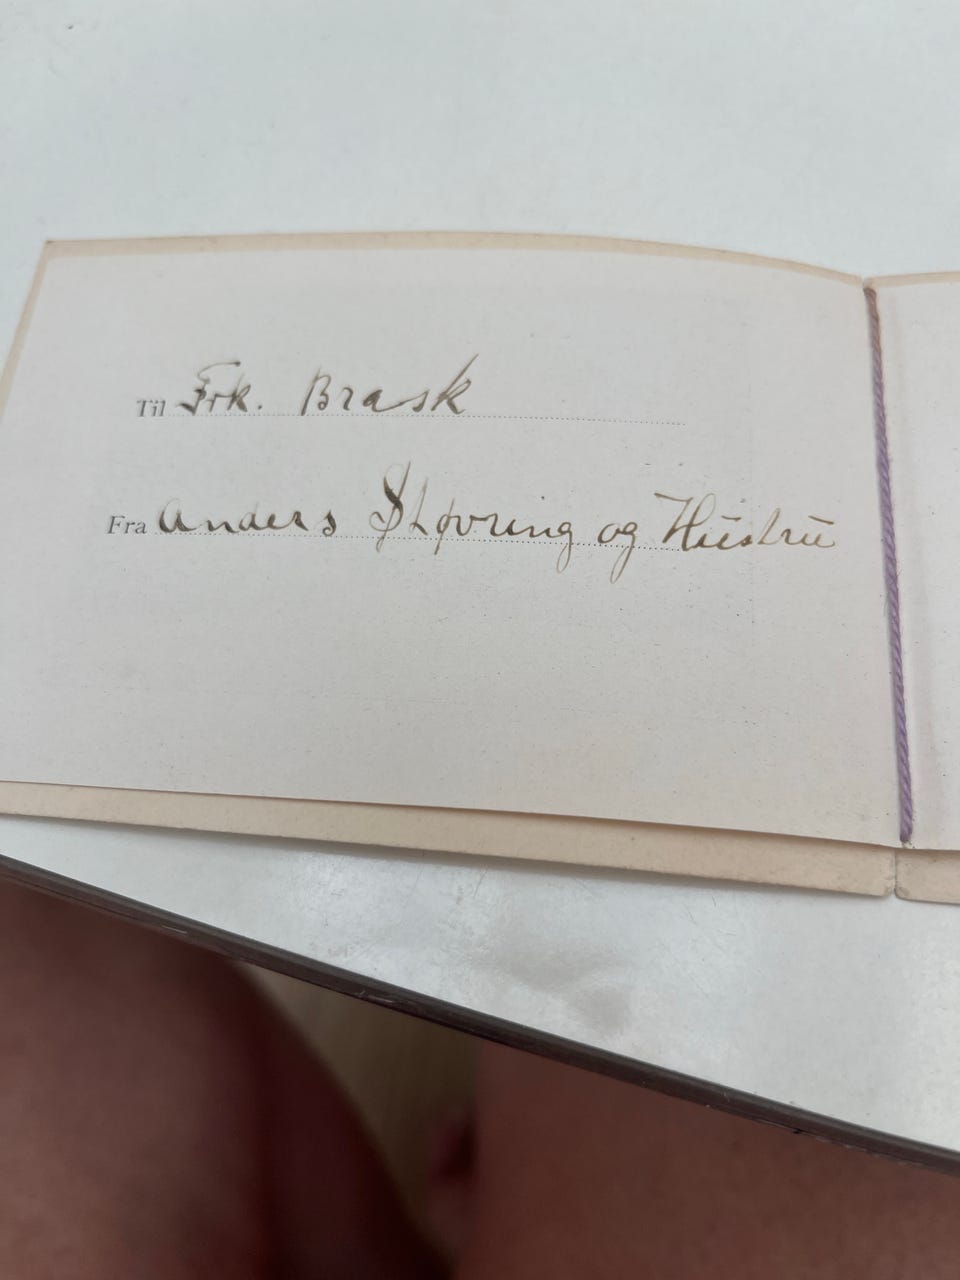 Til Frk. Brask
Fra Anders Støvring og Hustru